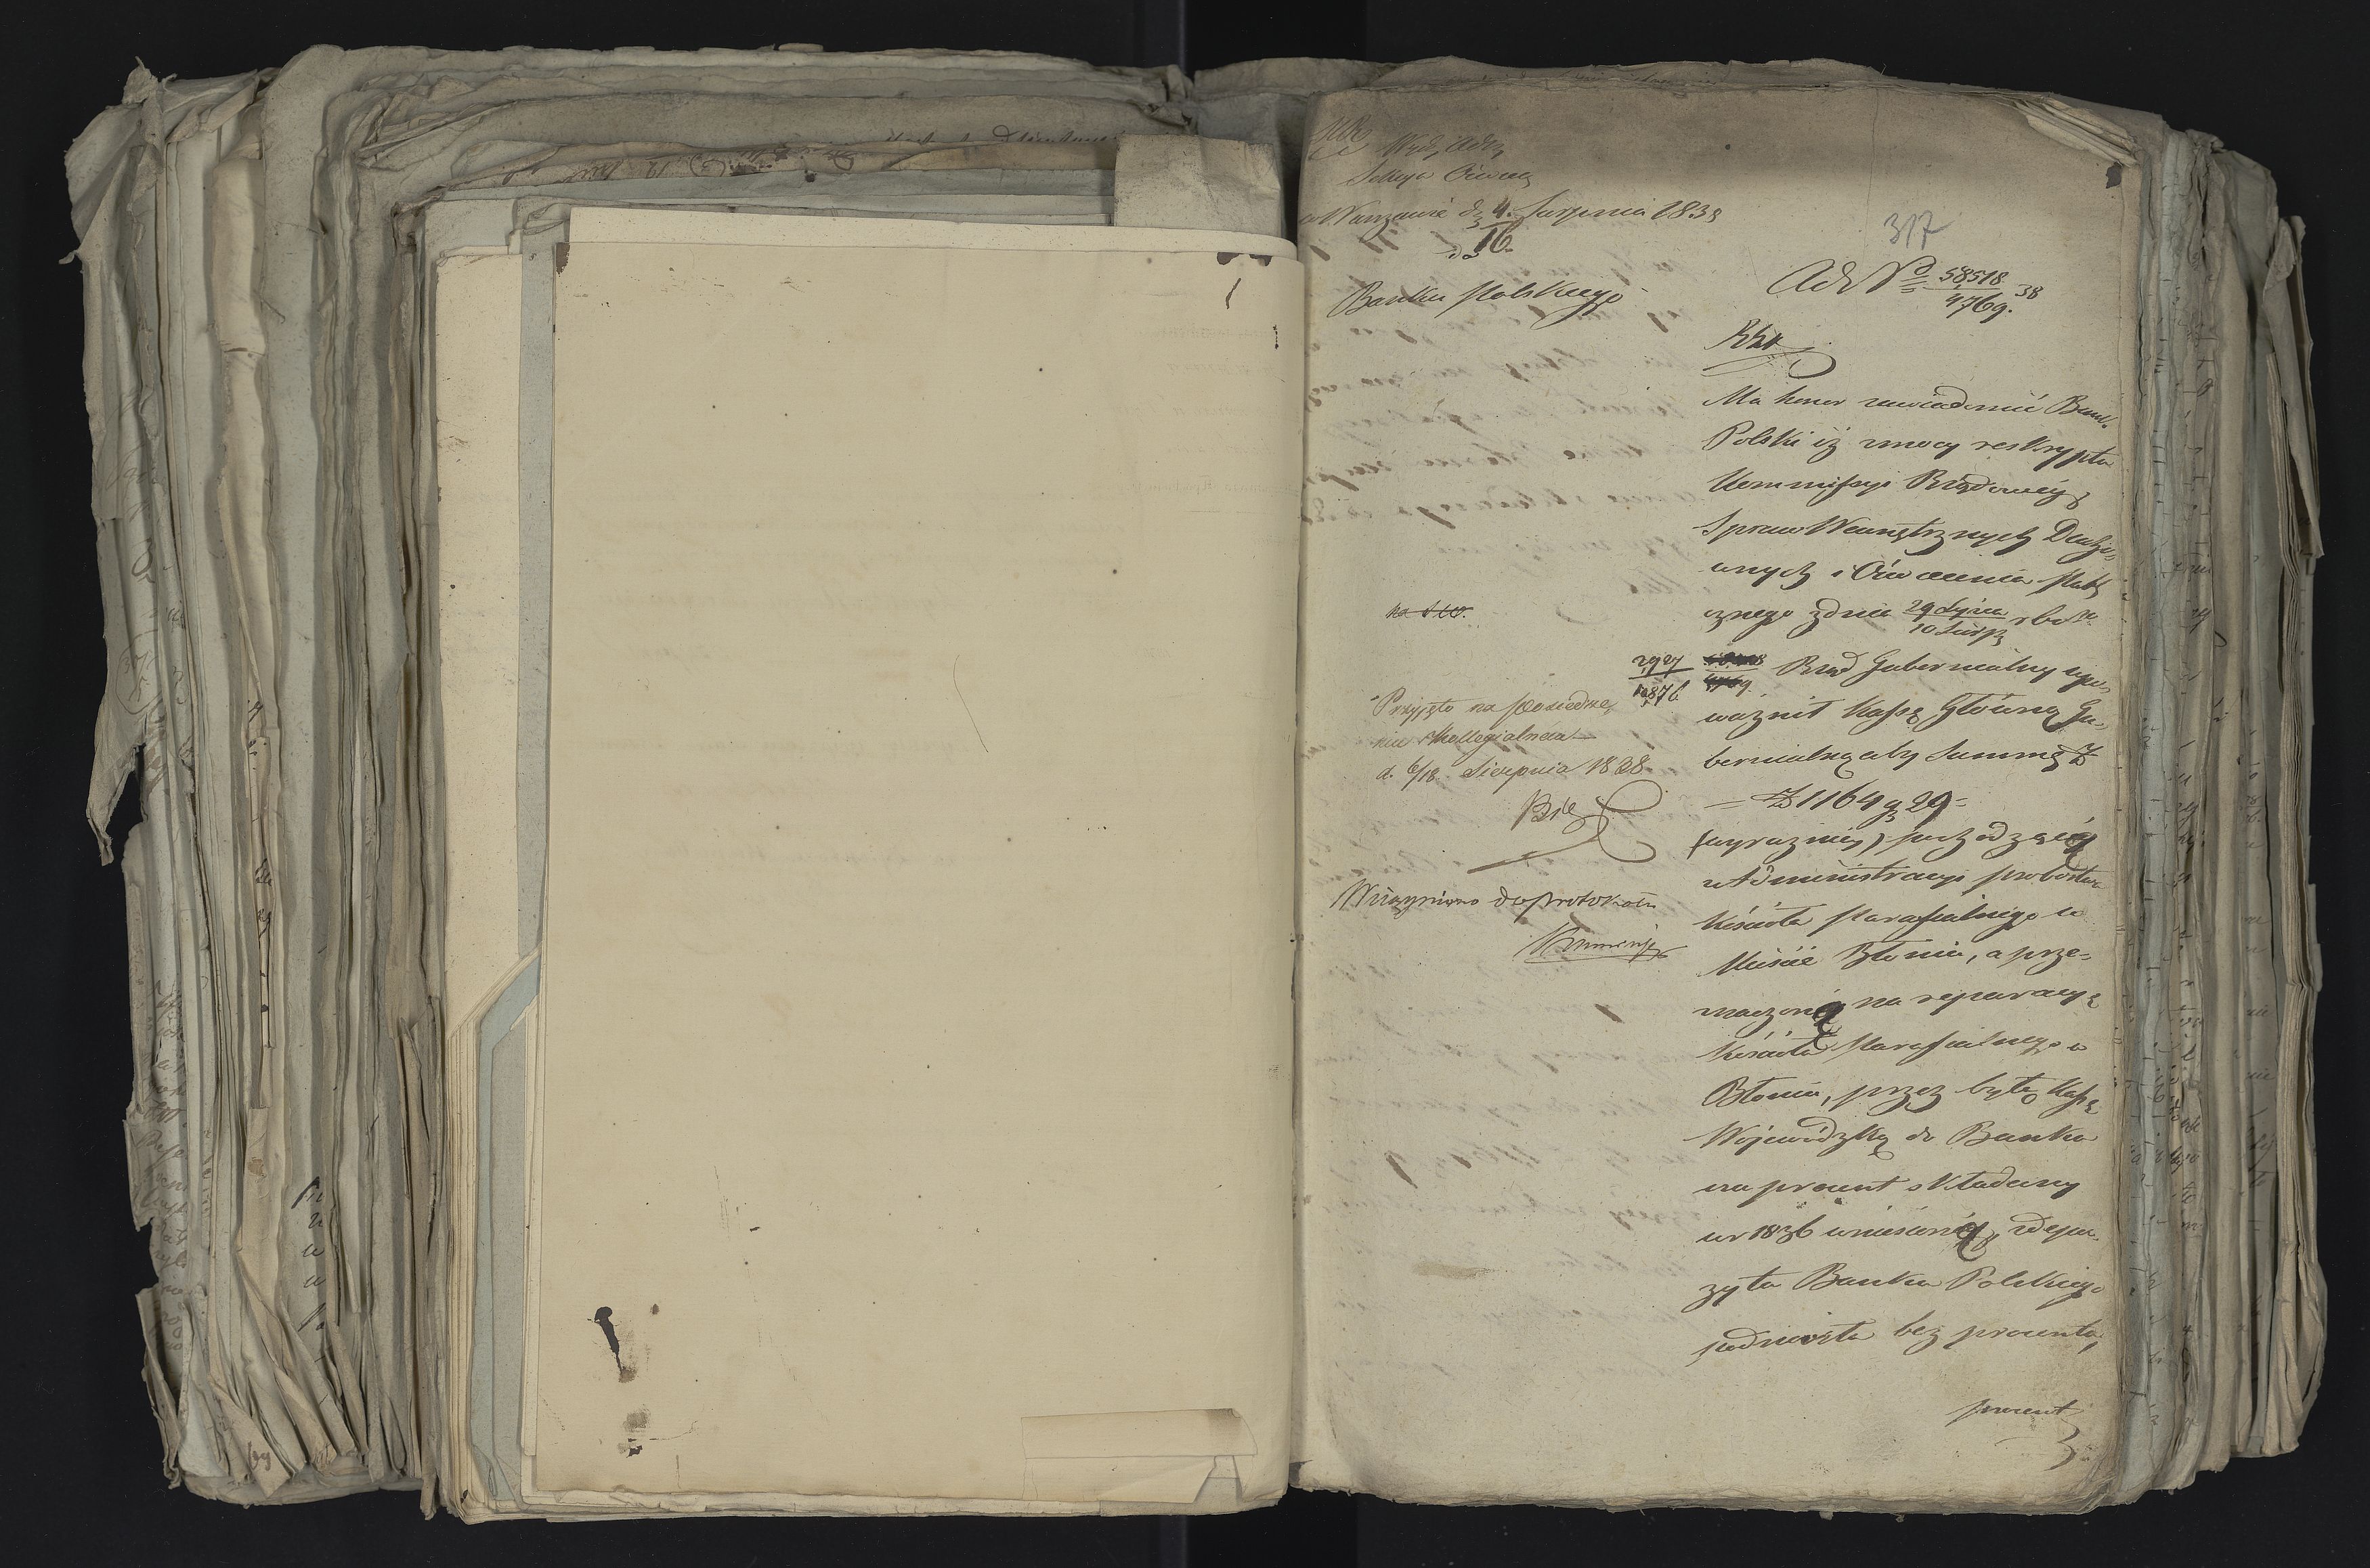 Wydz. Adm.
Sekcya Wewn.
w Warszawie d. 4. Sierpnia 1838
16.
Banku Polskiego
317
Ad No 58518/4769. 38
Ma honor zawiadomić Bank
Polski iż z mocy reskryptu
Kommissyi Rządowéy
Spraw Wewnętrznych Ducho-
wnych i Oświecenia Publi
cznego z dnia 29 Lipca/10 Sierp. r. b. No
2927/10876 Rząd Gubernialny upo-
ważnił Kassę Główną Gu-
bernialną aby Summę Zł
— Zł 1164 g 29 -
(wyraźniey) pochodzącą
z Administracyi probostwa
Kościoła Parafialnego w
Mieście Błoniu, a prze-
znaczoną na reparacyę
Kościoła Parafialnego w
Błoniu, przez byłą Kassę
Wojewódzką do Banku
na procent składany
w r 1836 wniesioną, z depo-
zytu Banku Polskiego
podniosła bez procentu,
procent
na
Przyjęto na posiedze-
niu Kollegialném
d. 6/18 Sierpnia 1838
Wciągniono do protokółu